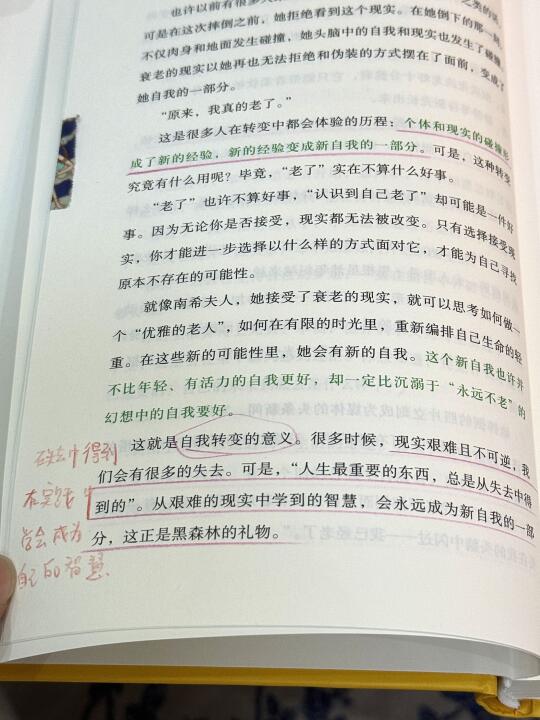 也许以前有很多
之类的说
可是在这次摔倒之前，她拒绝看到这个现实。在她倒下的那一
不仅肉身和地面发生碰撞，她头脑中的自我和现实也发生了碰撞
衰老的现实以她再也无法拒绝和伪装的方式摆在了面前，变成了
她自我的一部分。
“原来，我真的老了。”
这是很多人在转变中都会体验的历程：个体和现实的碰撞形
成了新的经验，新的经验变成新自我的一部分。可是，这种转变
究竟有什么用呢？毕竟，“老了”实在不算什么好事。
“老了”也许不算好事，“认识到自己老了”却可能是一件好
事。因为无论你是否接受，现实都无法被改变。只有选择接受现
实，你才能进一步选择以什么样的方式面对它，才能为自己寻找
原本不存在的可能性。
就像南希夫人，她接受了衰老的现实，就可以思考如何做一
个“优雅的老人”，如何在有限的时光里，重新编排自己生命的轻
重。在这些新的可能性里，她会有新的自我。这个新自我也许并
不比年轻、有活力的自我更好，却一定比沉溺于“永远不老”的
幻想中的自我要好。
这就是自我转变的意义。很多时候，现实艰难且不可逆，我
们会有很多的失去。可是，“人生最重要的东西，总是从失去中得
到的”。从艰难的现实中学到的智慧，会永远成为新自我的一部
分，这正是黑森林的礼物。
在失去中得到
在实践中
学会成为
自己的智慧